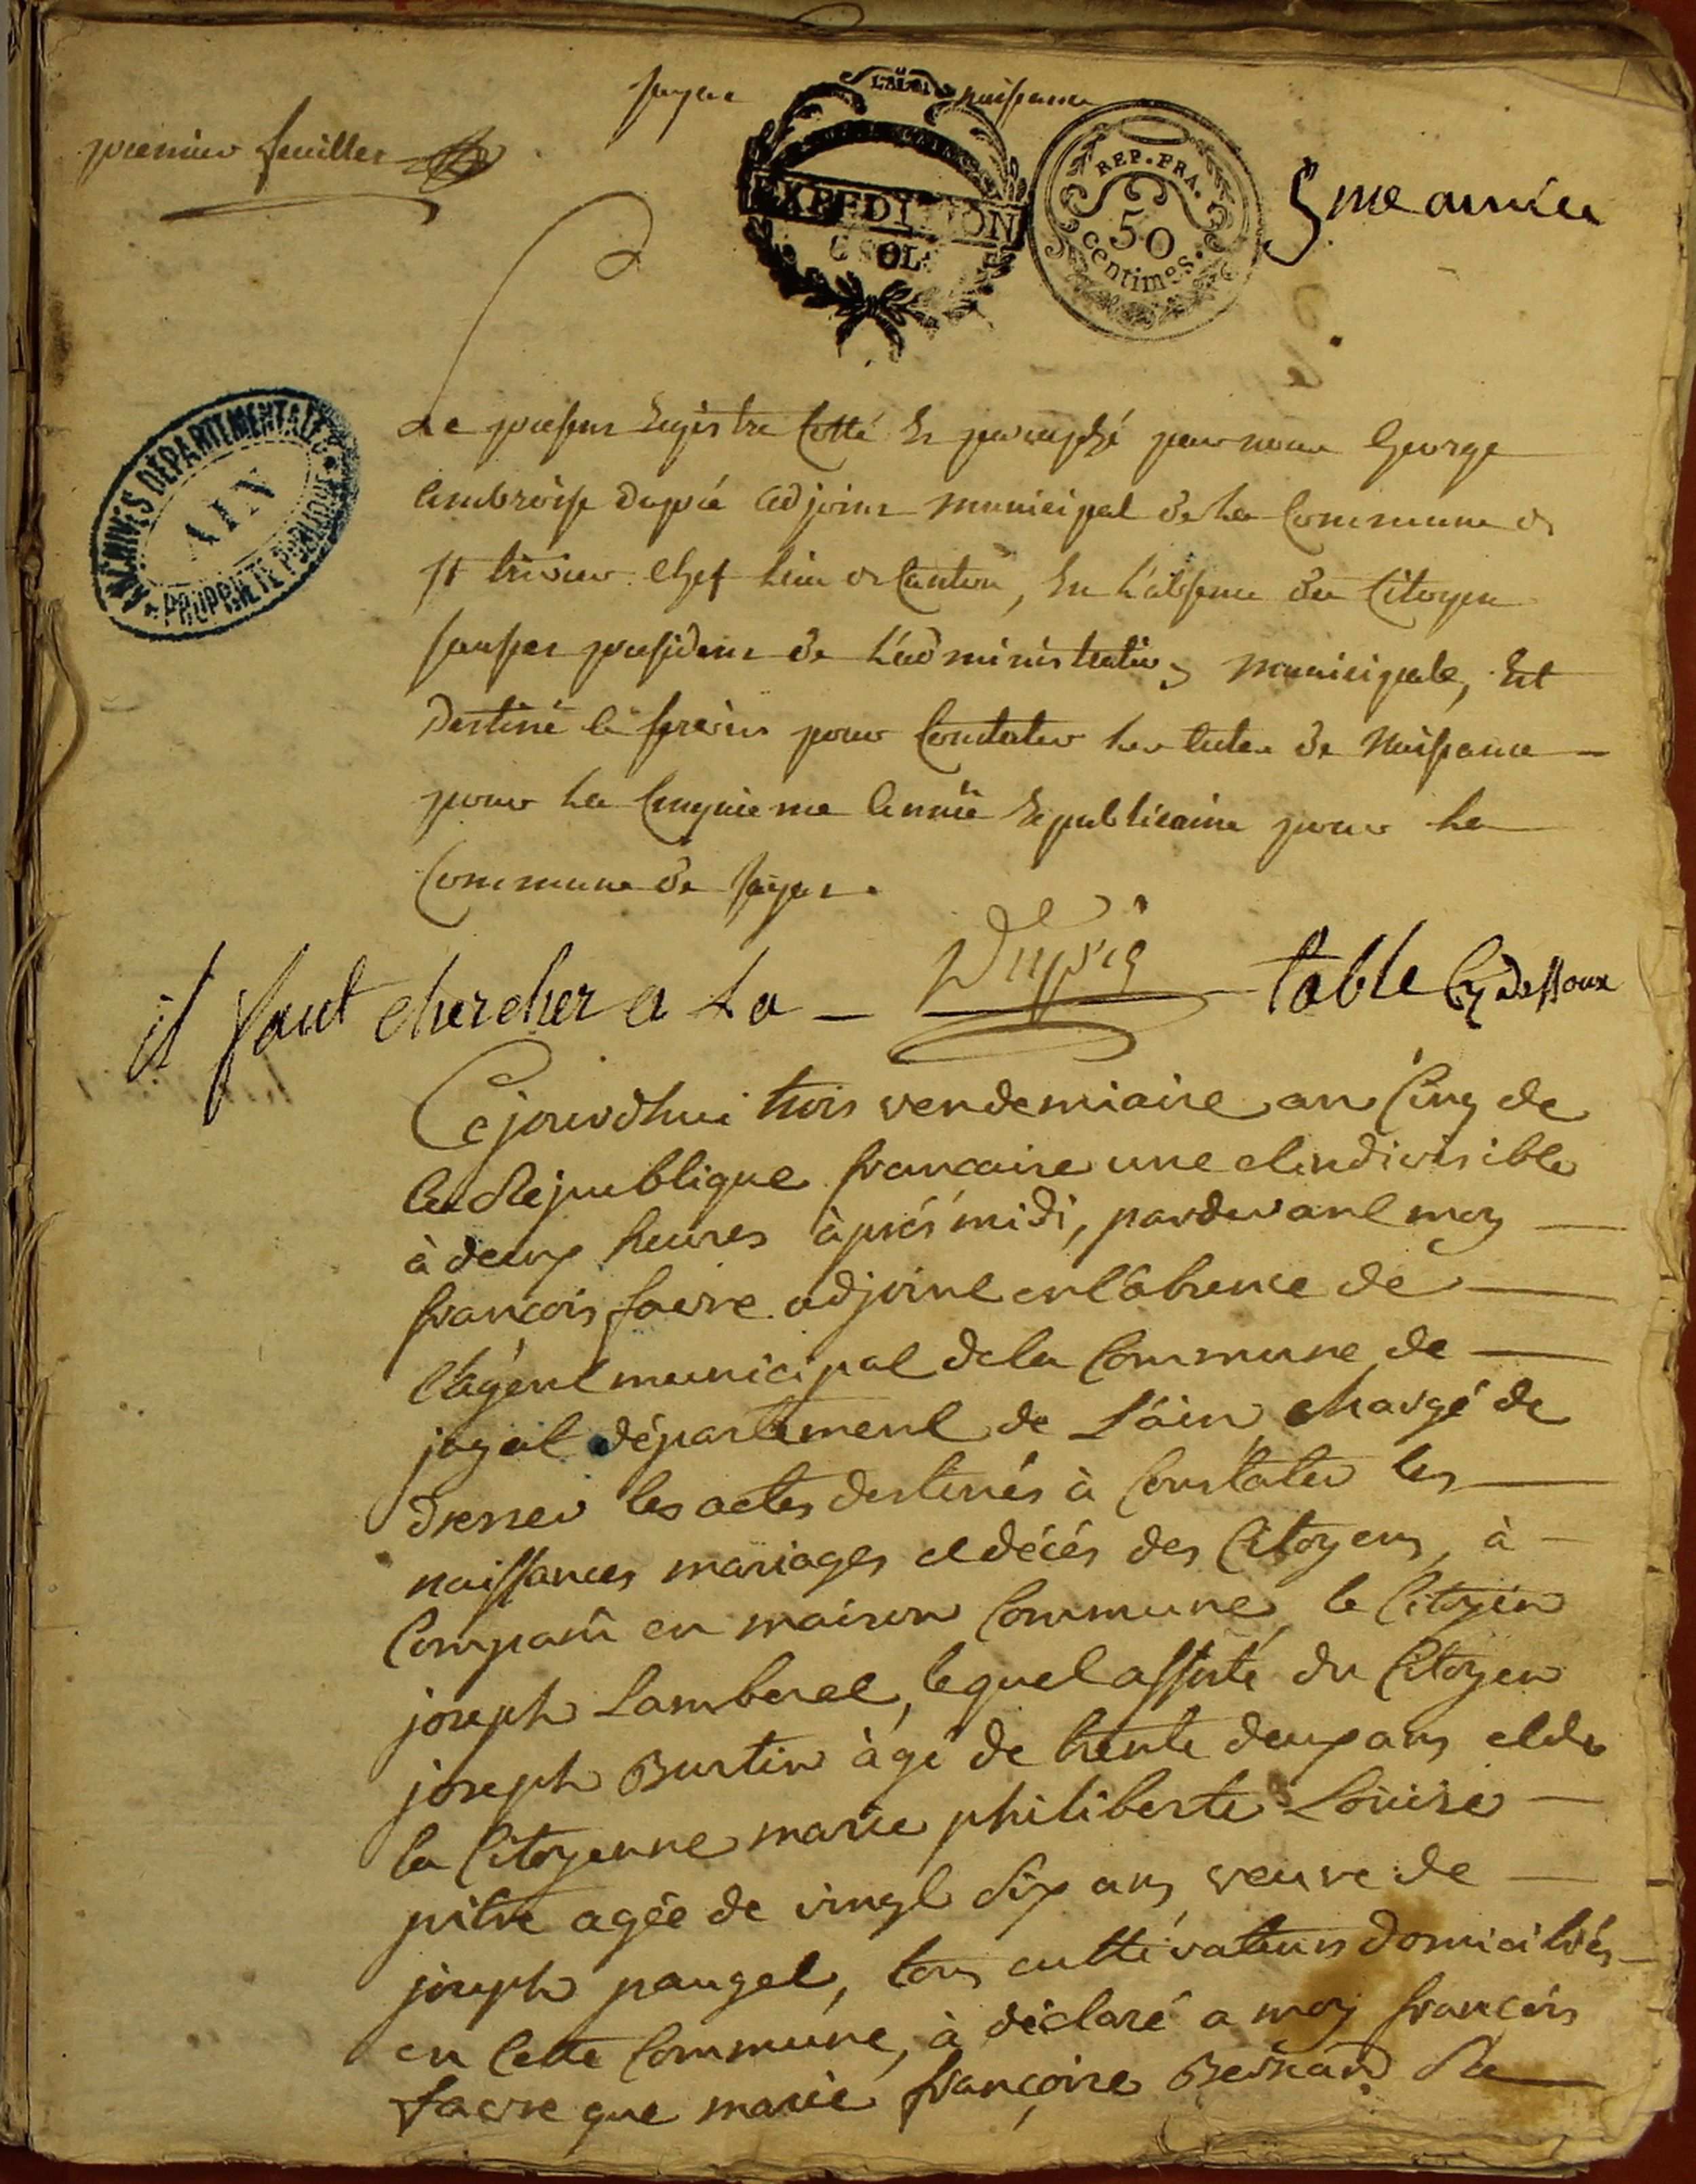 jayat naissance
premier feuillet
LA LOI
EXPEDITION
6 SOLS
REP. FRA.
50
centimes.
5me année
ARCHIVES DÉPARTEMENTALES
AIN
PROPRIÉTÉ PUBLIQUE
Le present Registre Cotté Et paraphé par nous George
ambroise Dupié adjoint municipal de la Commune de
st trivier chef lieu de Canton, En L'absence du Citoyen
president de L'administration municipale, Est
Destiné a servir pour Constater les actes de Naissance
pour la Cinquieme année Republicaine pour la
Commune de jayat.
Dupié
il faut chercher a La table Cy dessoux
Cejourdhui trois vendemiaire an Cinq de
la République francaise une et indivisible
à deux heures àprés midi, pardevant moy
francois favre adjoint en l'absence de
l'agent municipal dela Commune de
jayat département de L'ain chargé de
dresser les actes destinés à Constater les
naissances mariages et décés des Citoyens, à
Comparû en maison Commune, le Citoyen
joseph Lamberet, lequel assisté du Citoyen
joseph Burtin àgé de trente deux ans et de
la Citoyenne marie philiberte Louise
pitre agée de vingt six ans veuve de
joseph pauget, tous cultivateurs domiciliés
en Cette Commune, à déclaré a moy francois
favre que marie françoise Bernard Sa